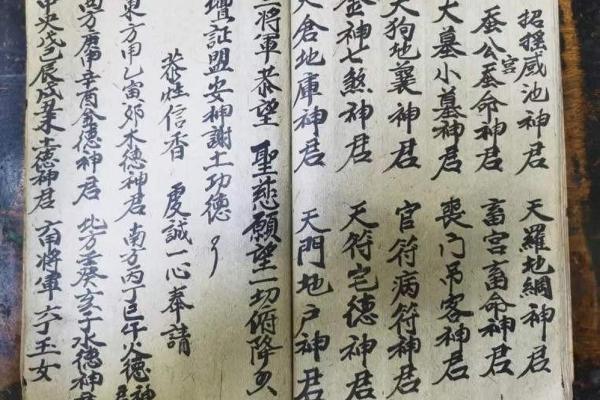 招搖咸池神君 天羅地網神君
蚕公蚕命神君 畜宮畜命神君
宮
大墓小墓神君 喪门吊客神君
天狗地喪神君 官符病符神君
金神七煞神君 天符宅德神君
天倉地庫神君 天門地户神君
三將軍恭望 聖慈願望一切俯降
壇証盟安神謝土功德
恭炷信香 虔誠一心奉請
東方甲乙寅卯木德神君 南方丙丁巳午火德神君
西方庚申辛酉金德神君 北方壬癸亥子水德神君
中央戊己辰戌丑未土德神君 六甲將軍六丁玉女